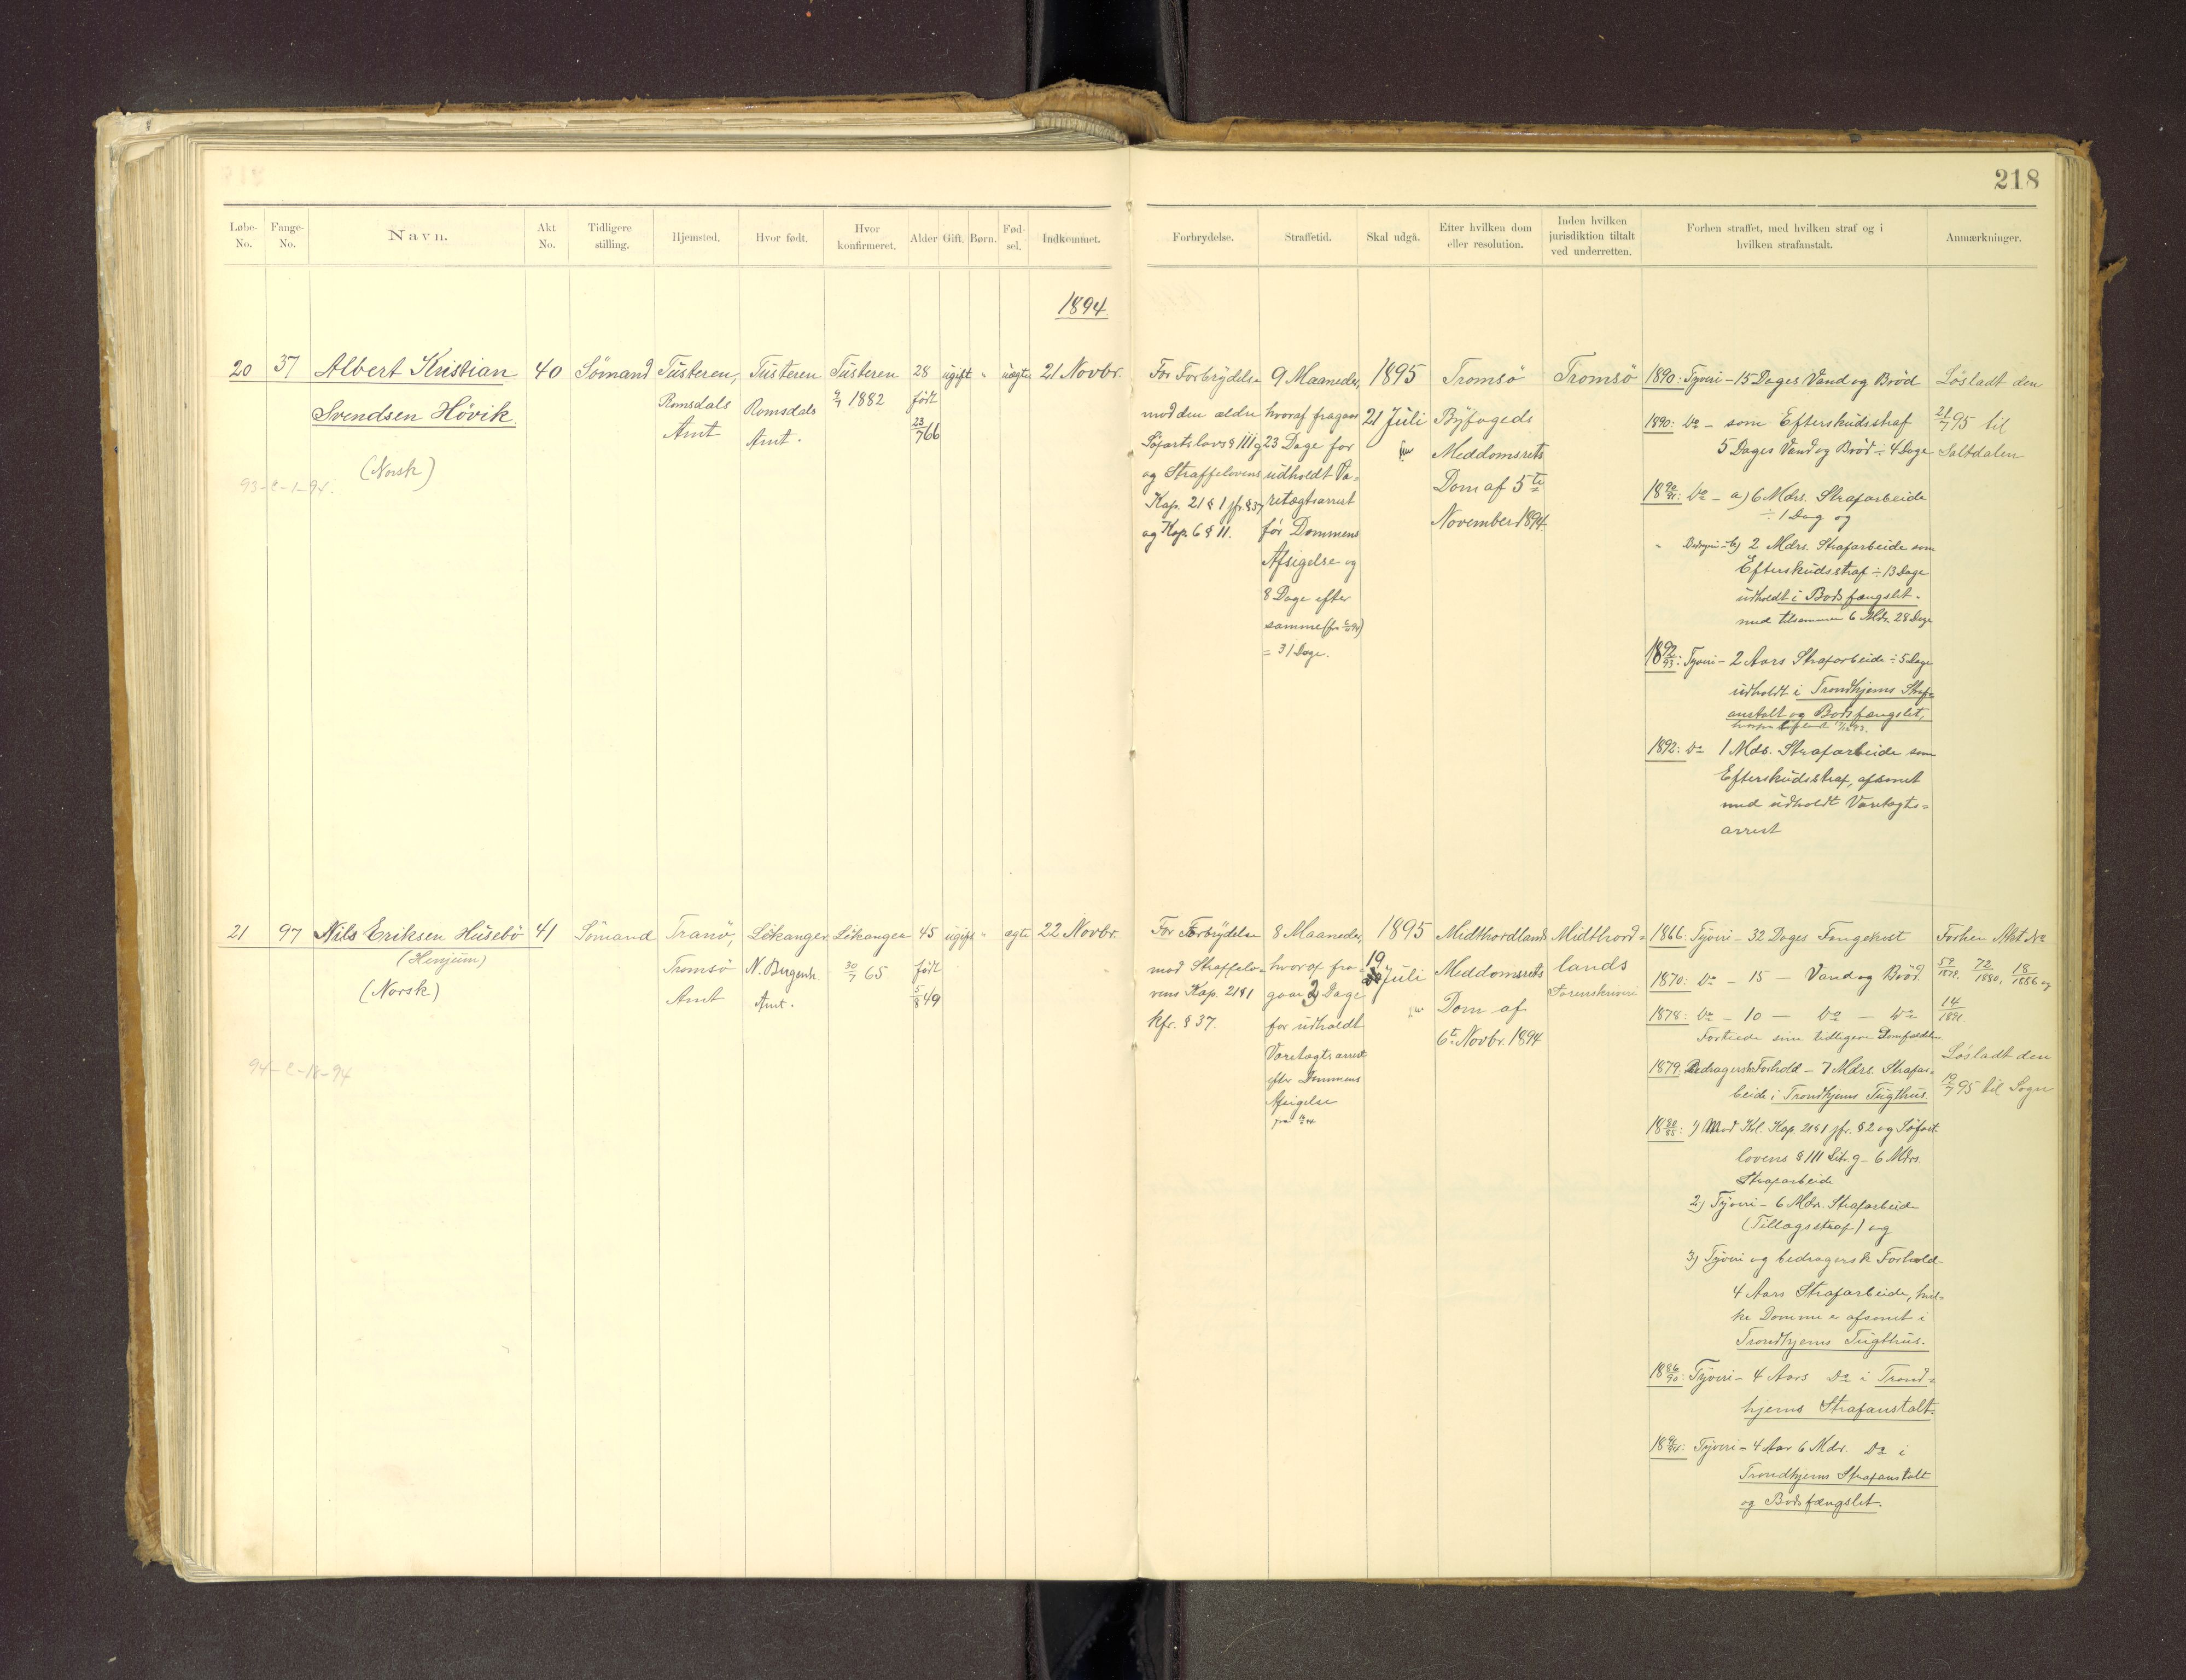 218
Løbe-No.
Fange-No.
Navn.
Akt No.
Tidligere stilling.
Hjemsted.
Hvor født.
Hvor konfirmeret.
Alder
Gift.
Børn.
Fød-sel.
Indkommet.
Forbrydelse.
Straffetid.
Skal udgå.
Efter hvilken dom eller resolution.
Inden hvilken jurisdiktion tiltalt ved underretten.
Forhen straffet, med hvilken straf og i hvilken strafanstalt.
Anmærkninger.
1894.
20
37
Albert Kristian
Svendsen Hövik.
(Norsk)
93-C-1-94.
40
Sömand
Tusteren,
Romsdals
Amt
Tusteren
Romsdals
Amt.
Tusteren
1882
28
født
23/7 66
ugift
"
uægte
21 Novbr.
For Forbrydelse
mod den ældre
Søfartslovs § 111 g
og Straffelovens
Kap. 21 § 1 jfr. § 37
og Kap. 6 § 11.
9 Maaneder,
hvoraf fragaar
23 Dage for
udholdt Va=
retægtsarrest
før Dommens
Afsigelse og
8 Dage efter
samme
= 31 Dage.
1895
21 Juli
Tromsö
Byfogeds
Meddomsrets
Dom af 5te
November 1894.
Tromsö
1890: Tyveri - 15 Dages Vand og Bröd
1890: Do - som Efterskudsstraf
5 Dages Vand og Bröd ÷ 4 Dage
18 90/91: Do - a) 6 Mdrs. Strafarbeide
÷ 1 Dag og
b) 2 Mdrs. Strafarbeide som
Efterskudsstraf ÷ 13 Dage
udholdt i Bodsfængslet -
med tilsammen 6 Mdr. 28 Dage
18 92/93: Tyveri - 2 Aars Strafarbeide ÷ 5 Dage
udholdt i Trondhjems Straf=
anstalt og Bodsfængslet,
1892: Do 1 Mds. Strafarbeide som
Efterskudsstraf, afsonet
med udholdt Varetægts=
arrest
Løsladt den
21/7 95 til
Saltdalen
21
97
Nils Eriksen Husebö
(Henjum)
(Norsk)
94-C-18-94
41
Sömand
Tranö,
Tromsö
Amt
Lekanger
N. Bergenh.
Amt.
Lekanger
30/7 65
45
født
5/8 49
ugift
"
ægte
22 Novbr.
For Forbrydelse
mod Straffelo=
vens Kap. 21 § 1
kfr. § 37.
8 Maaneder,
hvoraf fra=
gaar 3 Dage
for udholdt
Varetægtsarrest
efter Dommens
Afsigelse
1895
19
Juli
Midthordland
Meddomsrets
Dom af
6te Novbr. 1894
Midthord=
lands
Sorenskriveri
1866: Tyveri - 32 Dages Fangekost
1870: Do - 15 - Vand og Bröd.
1878: Do - 10 - Do - Do
Fortiede sine tidligere Domfældelser
1879: Bedragersk Forhold - 7 Mdrs. Strafar=
beide i Trondhjems Tugthus.
18 80/85: 1) Mod Krl. Kap. 21 § 1 jfr. § 2 og Søfart
lovens § 111 Litr. g - 6 Mdrs
Strafarbeide
2) Tyveri - 6 Mdr. Strafarbeide
(Tillægsstraf) og
3) Tyveri og bedragersk Forhold -
4 Aars Strafarbeide, hvil=
ke Domme er afsonet i
Trondhjems Tugthus.
18 86/90: Tyveri - 4 Aars Do i Trond=
hjems Strafanstalt.
Tyveri - 4 Aar 6 Mdr. Do i
Trondhjems Strafanstalt
og Bodsfængslet.
Forhen Akt No
59/1879. 72/1880, 18/1886 og
14/1891
Løsladt den
19/7 95 til Sogn